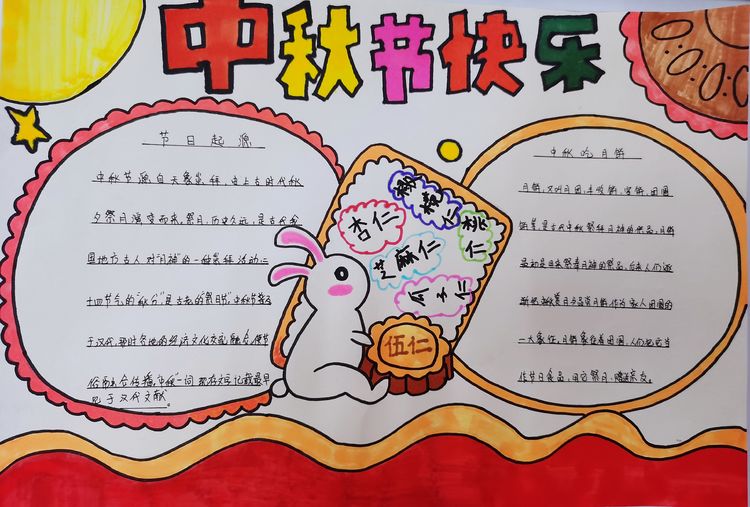 中秋节快乐
节日起源
中秋节源自天象崇拜,由上古时代秋
夕祭月演变而来。祭月,历史久远,是古代我
国地方古人对"月神"的一种崇拜活动,二
十四节气的"秋分"是古老的"祭月节"中秋节
于汉代,那时各地的经济文化交流融合使节
俗 合传播,"中秋"一词现存文字记载最早
见于汉代文献。
杏仁
核桃仁
桃仁
芝麻仁
瓜子仁
伍仁
中秋吃月饼
月饼,又叫月团、丰收饼、宫饼、团圆
饼等是古代中秋祭拜月神的供品,月饼
最初是用来祭奉月神的祭品,后来人们逐
渐把秋赏月与品尝月饼,作为家人团圆的
一大象征,月饼象征着团圆,人们把它当
作节日食品,用它祭月、赠送亲友。